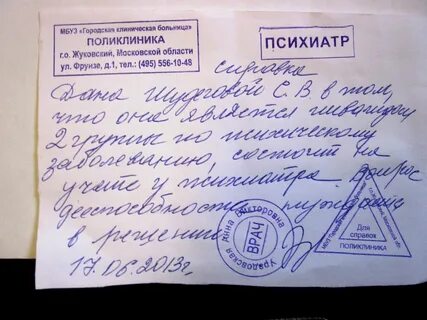 МБУЗ «Городская клиническая больница»
ПОЛИКЛИНИКА
г.о. Жуковский, Московской области
ул. Фрунзе, д.1, тел.: (495) 556-10-48
ПСИХИАТР
справка
Дана С.В в том,
что она является инвалидом
2 группы по психическому
заболеванию, состоит на
учете у психиатра. Вопрос
дееспособности нуждается
в решении
17.06.2013г
Урадовская Анна Викторовна
ВРАЧ
Для
справок
ПОЛИКЛИНИКА